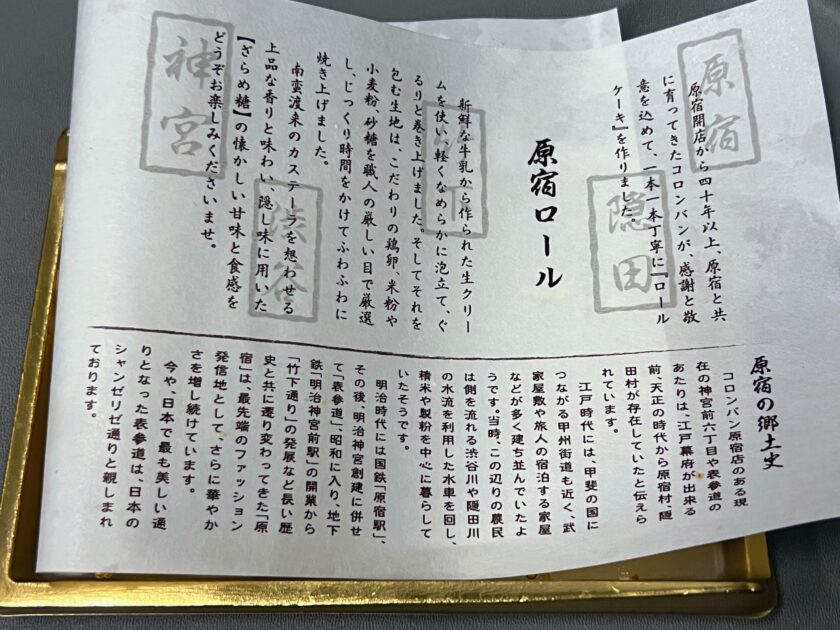 原宿
隠田
竹下
渋谷
神宮
原宿開店から四十年以上、原宿と共
に育ってきたコロンバンが、感謝と敬
意を込めて、一本一本丁寧に『ロール
ケーキ』を作りました。
原宿ロール
新鮮な牛乳から作られた生クリー
ムを使い軽くなめらかに泡立て、ぐ
るりと巻き上げました。そしてそれを
包む生地は、こだわりの鶏卵、米粉や
小麦粉、砂糖を職人の厳しい目で厳選
し、じっくり時間をかけてふわふわに
焼き上げました。
南蛮渡来のカステーラを想わせる
上品な香りと味わい、隠し味に用いた
【ざらめ糖】の懐かしい甘味と食感を
どうぞお楽しみくださいませ。
原宿の郷土史
コロンバン原宿店のある現
在の神宮前六丁目や表参道の
あたりは、江戸幕府が出来る
前、天正の時代から原宿村、隠
田村が存在していたと伝えら
れています。
江戸時代には、甲斐の国に
つながる甲州街道も近く、武
家屋敷や旅人の宿泊する家屋
などが多く建ち並んでいたよ
うです。当時、この辺りの農民
は側を流れる渋谷川や隠田川
の水流を利用した水車を回し、
精米や製粉を中心に暮らして
いたそうです。
明治時代には国鉄「原宿駅」、
その後、明治神宮創建に併せ
て「表参道」、昭和に入り、地下
鉄「明治神宮前駅」の開業から
「竹下通り」の発展など長い歴
史と共に遷り変わってきた「原
宿」は、最先端のファッション
発信地として、さらに華やか
さを増し続けています。
今や、日本で最も美しい通
りとなった表参道は、日本の
シャンゼリゼ通りと親しまれ
ております。